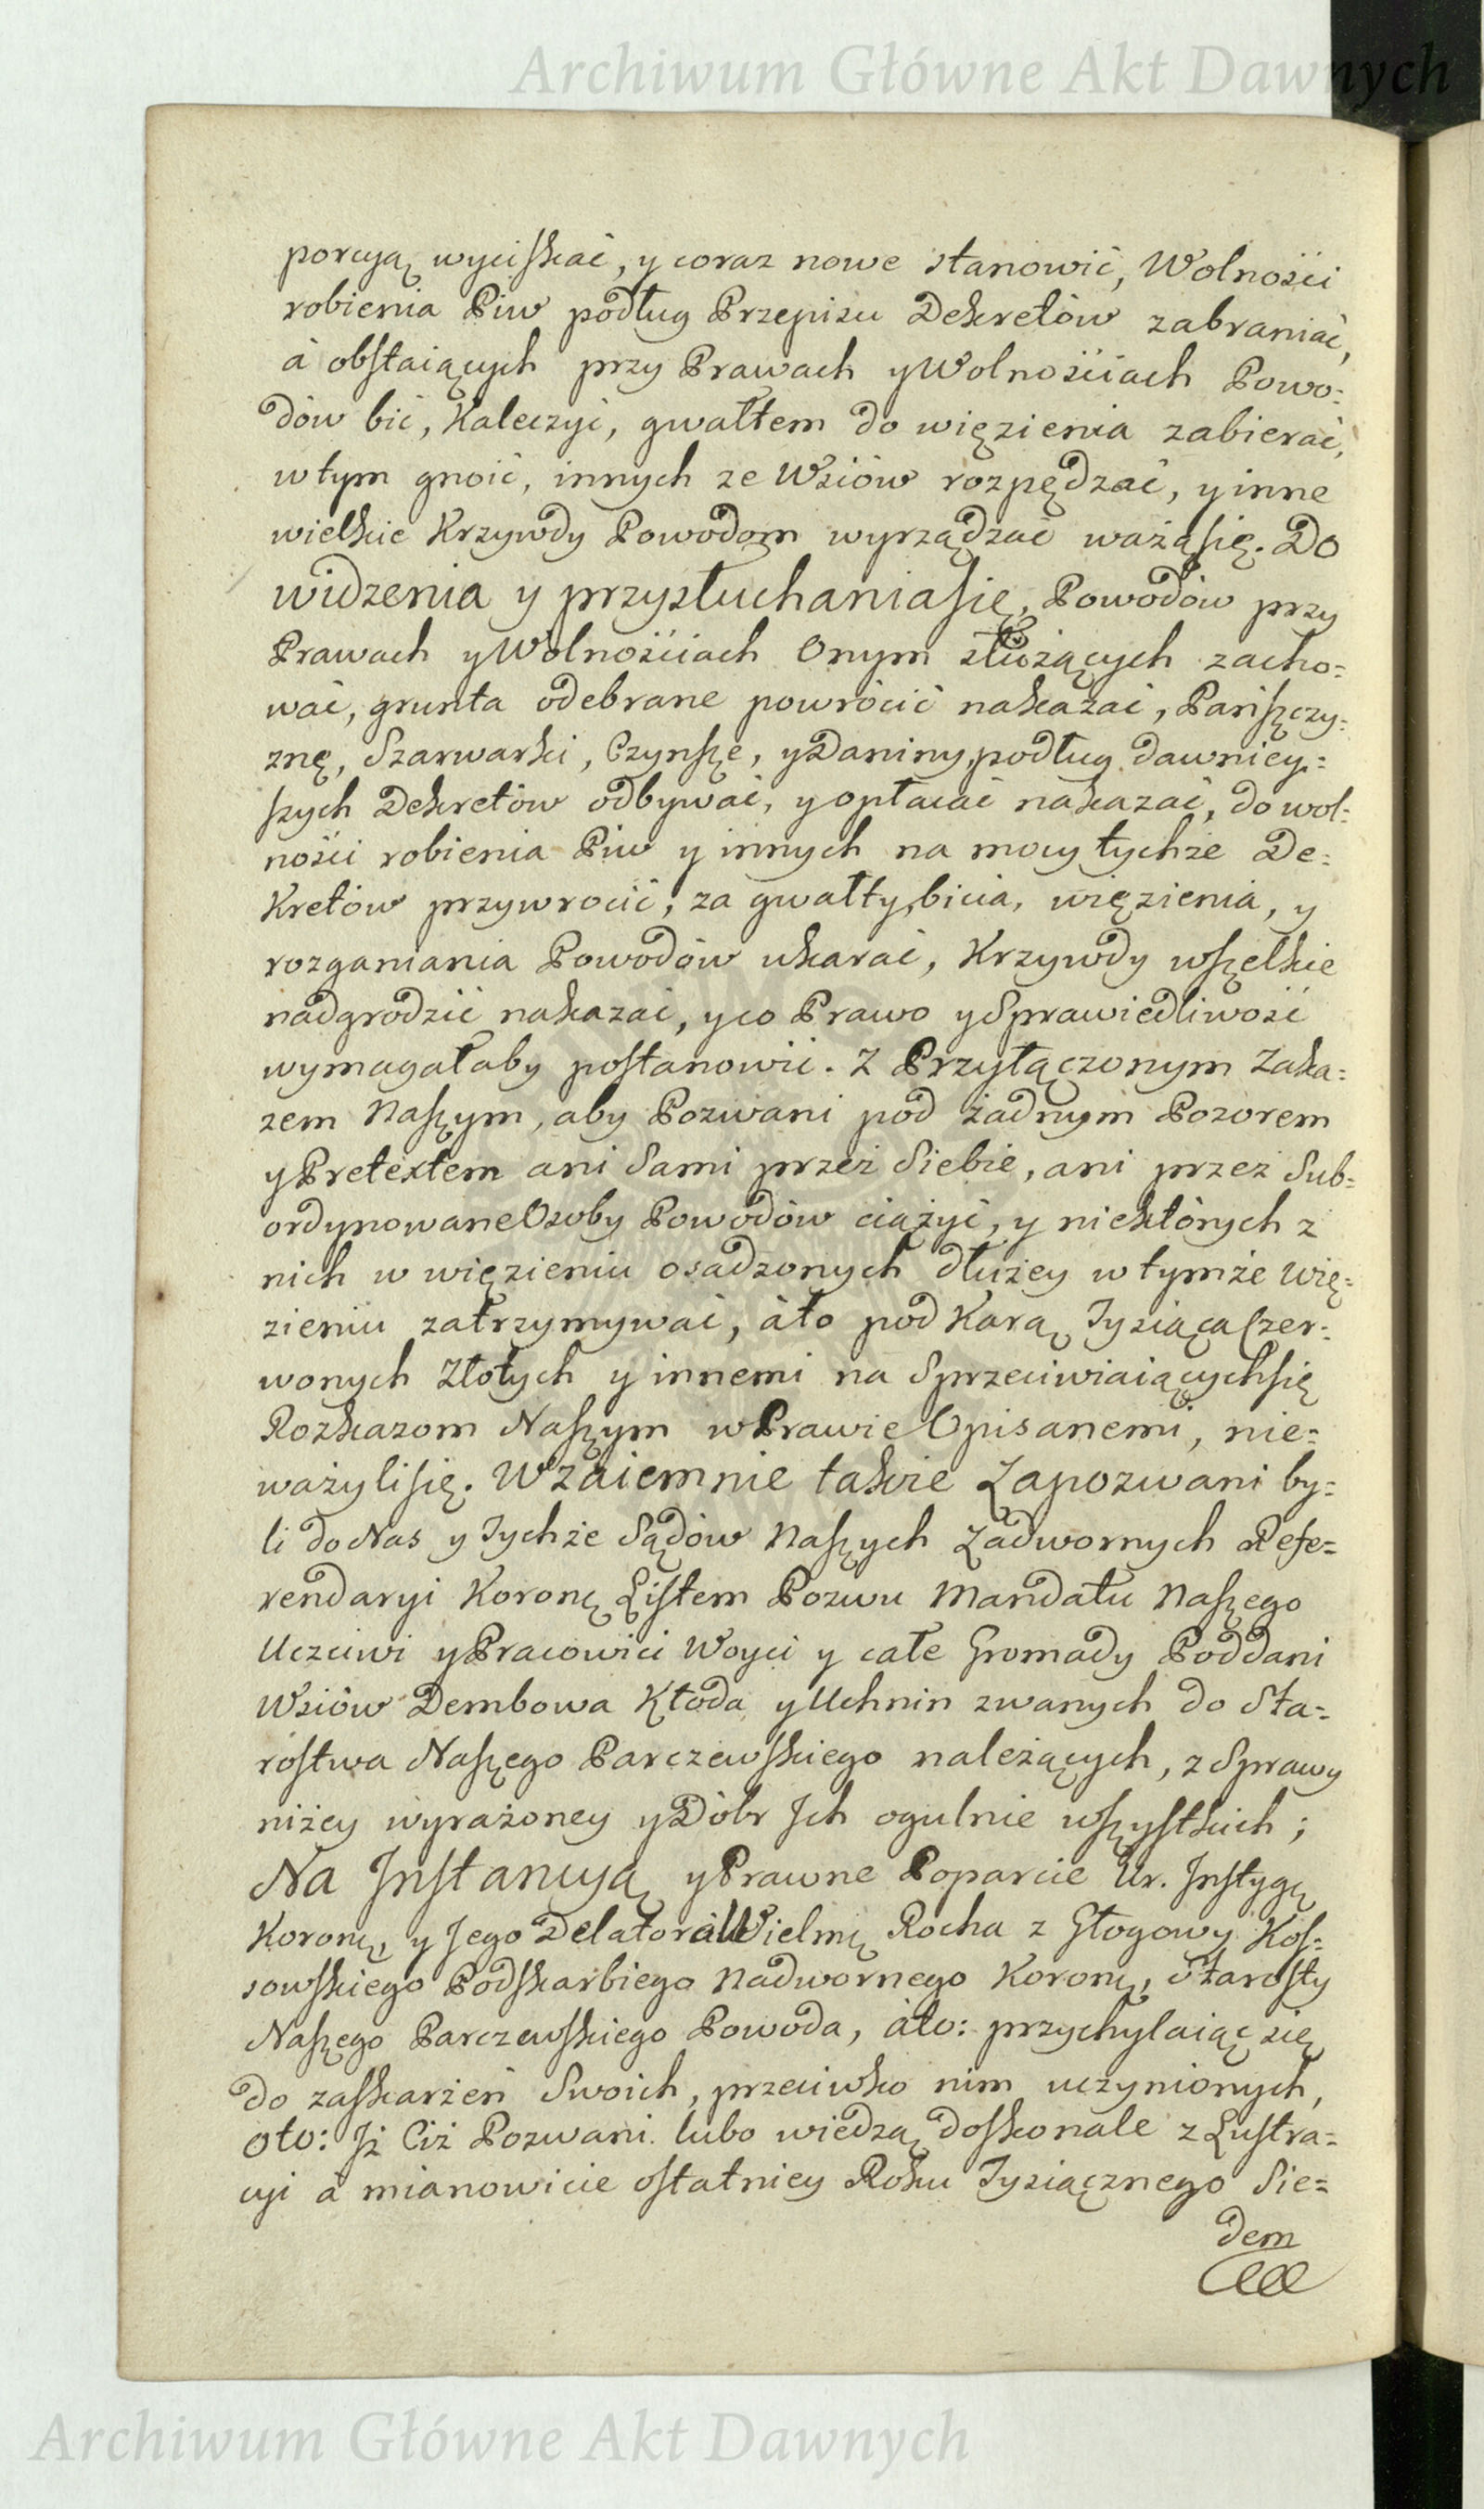 Archiwum Główne Akt Dawnych
porcyą wyciskać, y coraz nowe stanowić, Wolności
robienia Piw podług Przepisu Dekretów zabraniać,
á obstaiących przy Prawach y Wolnościach Powo=
dów bić, Kaleczyć, gwałtem do więzienia zabierać,
w tym gnoić, innych ze Wsiów rozpędzać, y inne
wielkie Krzywdy Powodom wyrządzać ważą się. Do
widzenia y przysłuchania się, Powodów przy
Prawach y Wolnościach Onym służących zacho=
wać, grunta odebrane powrócić nakazać, Pańszczy=
znę, Szarwarki, Czynsze, y Daniny, podług dawniey=
szych Dekretów odbywać, y opłacać nakazać, do wol=
ności robienia Piw y innych na mocy tychże De=
kretów przywrocić, za gwałty, bicia, więzienia, y
rozganiania Powodów ukarać, Krzywdy wszelkie
nadgrodzić nakazać, y co Prawo y Sprawiedliwość
wymagałaby postanowić. Z Przyłączonym Zaka=
zem Naszym, aby Pozwani pod żadnym Pozorem
y Pretextem ani Sami przez Siebie, ani przez Sub=
ordynowane Osoby Powodów ciążyć, y niektórych z
nich w więzieniu osadzonych dłużey w tymże Wię=
zieniu zatrzymywać, áto pod Karą Tysiąca Czer=
wonych Złotych y innemi na Sprzeciwiaiących się
Rozkazom Naszym w Prawie Opisanemi, nie=
ważyli się. Wzaiemnie także Zapozwani by=
li do Nas y Tychże Sądów Naszych Zadwornych Refe=
rendaryi Koronę Listem Pozwu Mandatu Naszego
Uczciwi y Pracowici Woyci y całe Gromady Poddani
Wsiów Dembowa Kłoda y Uchnin zwanych do Sta=
rostwa Naszego Parczewskiego należących, z Sprawy
niżey wyrażoney y Dóbr Ich ogulnie wszystkich;
Na Instancyą y Prawne Poparcie Ur. Instygę
Koronę, y Jego Delatora Wielmę Rocha z Głogowy Kos=
sowskiego Podskarbiego Nadwornego Koronę, Starosty
Naszego Parczewskiego Powoda, áto: przychylaiąc się
do zaskarżeń Swoich, przeciwko nim uczynionych,
oto: Iż Ciż Pozwani lubo wiedzą doskonale z Lustra=
cyi á mianowicie ostatniey Roku Tysiącznego Sie=
dem
Archiwum Główne Akt Dawnych